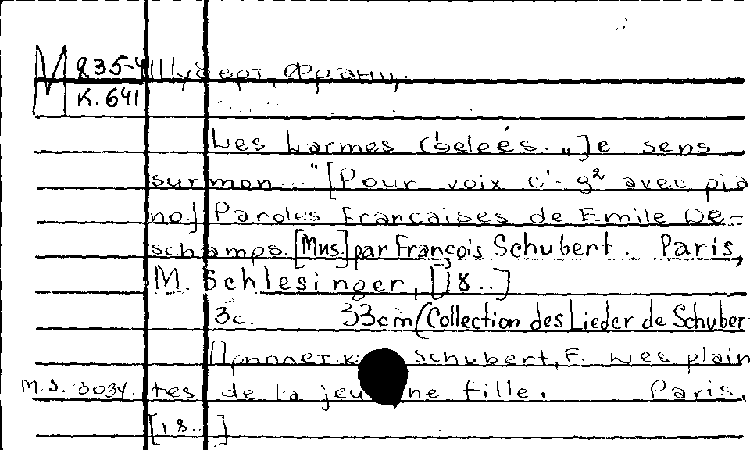 М 235-4 Шуберт, Франц.
К. 641
Les Larmes Gelées. „Je sens
sur mon..." [Pour voix c'-g² avec pia
no.] Paroles Françaises de Emile De-
schamps. [Mus.] par François Schubert. Paris,
M. Schlesinger, [18..]
3c. 33cm (Collection des Lieder de Schuber
Приплет. к Schubert, F. Les plain
M.S. 3034. tes de la jeune fille. Paris.
[18..]